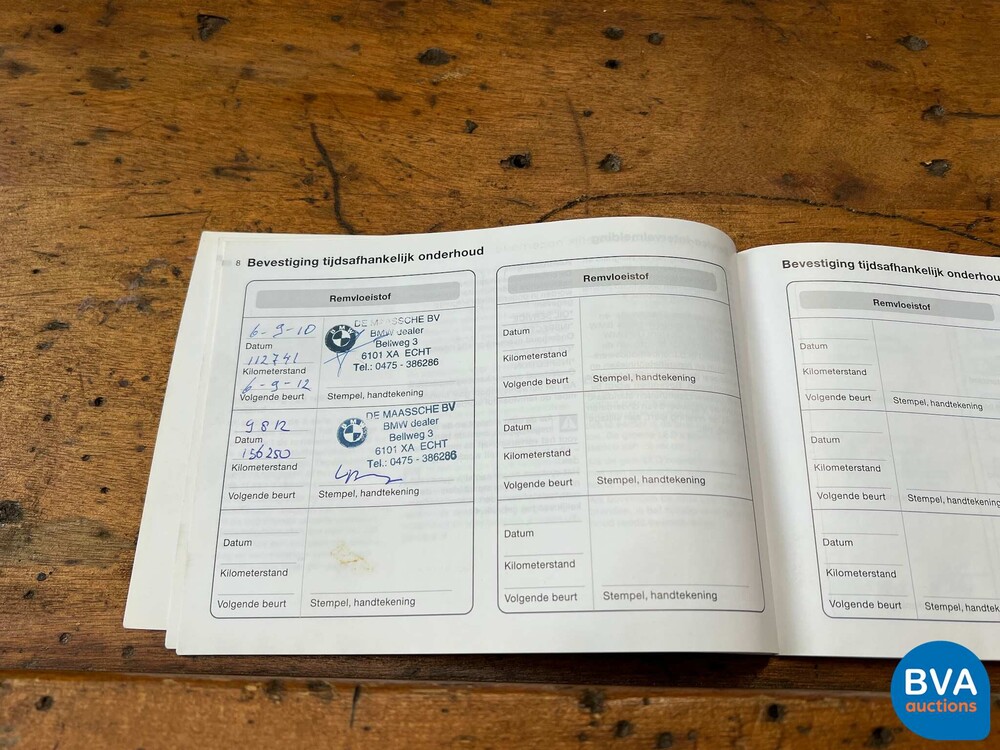 8 Bevestiging tijdsafhankelijk onderhoud
Remvloeistof
6-9-10
Datum
112741
Kilometerstand
6-9-12
Volgende beurt
DE MAASSCHE BV
BMW dealer
Bellweg 3
6101 XA ECHT
Tel.: 0475 - 386286
Stempel, handtekening
9 8 12
Datum
156250
Kilometerstand
Volgende beurt
DE MAASSCHE BV
BMW dealer
Bellweg 3
6101 XA ECHT
Tel.: 0475 - 386286
Stempel, handtekening
Datum
Kilometerstand
Volgende beurt
Stempel, handtekening
Remvloeistof
Datum
Kilometerstand
Volgende beurt
Stempel, handtekening
Datum
Kilometerstand
Volgende beurt
Stempel, handtekening
Datum
Kilometerstand
Volgende beurt
Stempel, handtekening
Bevestiging tijdsafhankelijk onderhou
Remvloeistof
Datum
Kilometerstand
Volgende beurt
Stempel, handtekening
Datum
Kilometerstand
Volgende beurt
Stempel, handtekening
Datum
Kilometerstand
Volgende beurt
Stempel, handtek
BVA
auctions